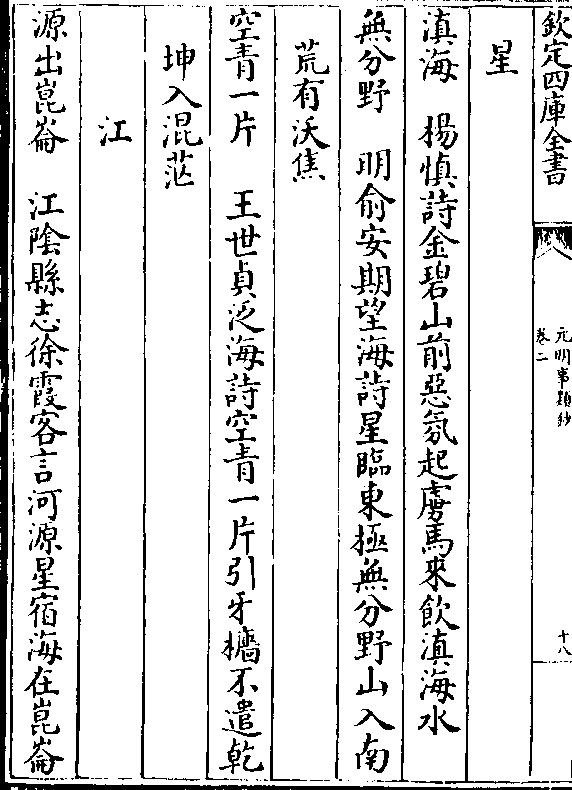 欽定四庫全書
元明事類鈔
卷二
十八
星
滇海　楊慎詩金碧山前惡氛起虜馬來飲滇海水
無分野　明俞安期望海詩星臨東極無分野山入南
荒有沃焦
空青一片　王世貞泛海詩空青一片引牙檣不遣乾
坤入混茫
江
源出崑崙　江陰縣志徐霞客言河源星宿海在崑崙